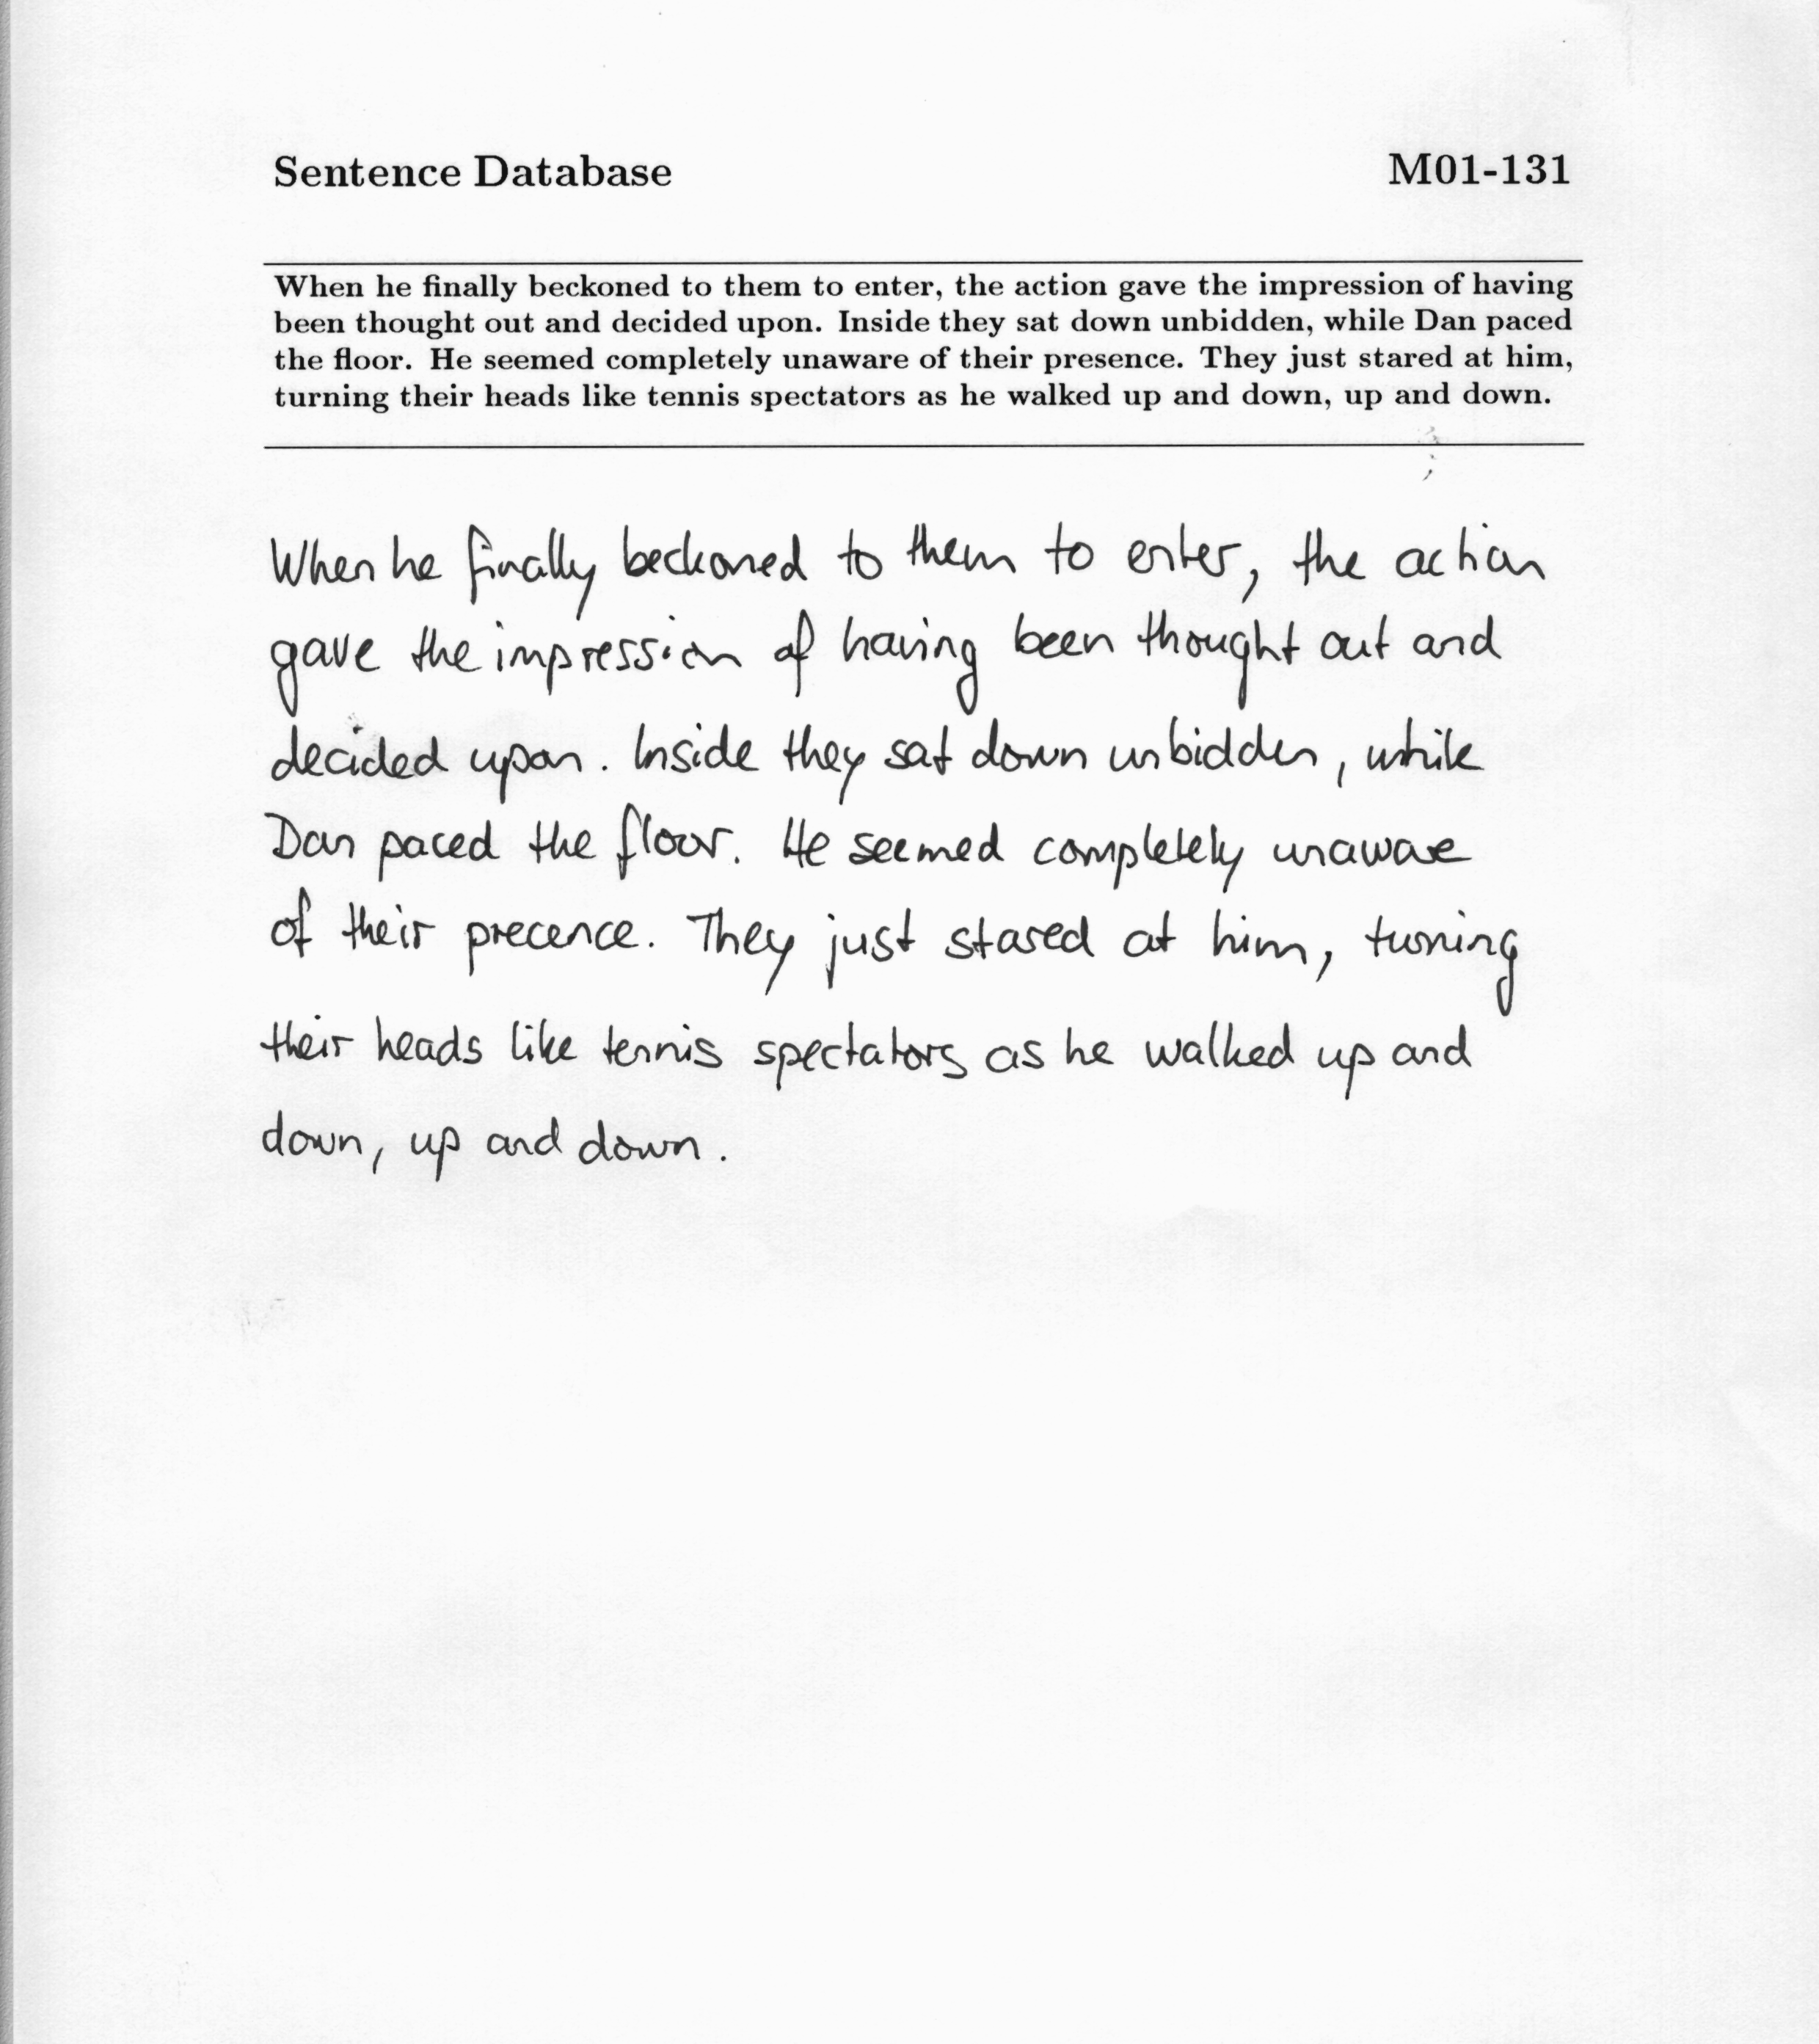 Sentence Database M01-131
When he finally beckoned to them to enter, the action gave the impression of having
been thought out and decided upon. Inside they sat down unbidden, while Dan paced
the floor. He seemed completely unaware of their presence. They just stared at him,
turning their heads like tennis spectators as he walked up and down, up and down.
When he finally beckoned to them to enter, the action
gave the impression of having been thought out and
decided upon. Inside they sat down unbidden, while
Dan paced the floor. He seemed completely unaware
of their precence. They just stared at him, turning
their heads like tennis spectators as he walked up and
down, up and down.